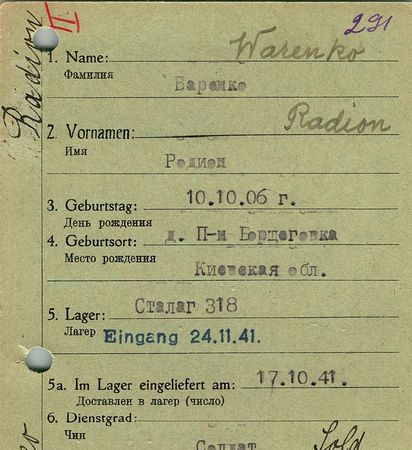 Radion
II.
291
Warenko
1. Name:
Фамилия
Варенко
Radion
2. Vornamen:
Имя
Родион
3. Geburtstag: 10.10.06 г.
День рождения
4. Geburtsort: д. П-и
Место рождения
Киевская обл.
5. Lager: Сталаг 318
Лагер Eingang 24.11.41.
5a. Im Lager eingeliefert am: 17.10.41.
Доставлен в лагер (число)
6. Dienstgrad:
Чин
Солдат Sold